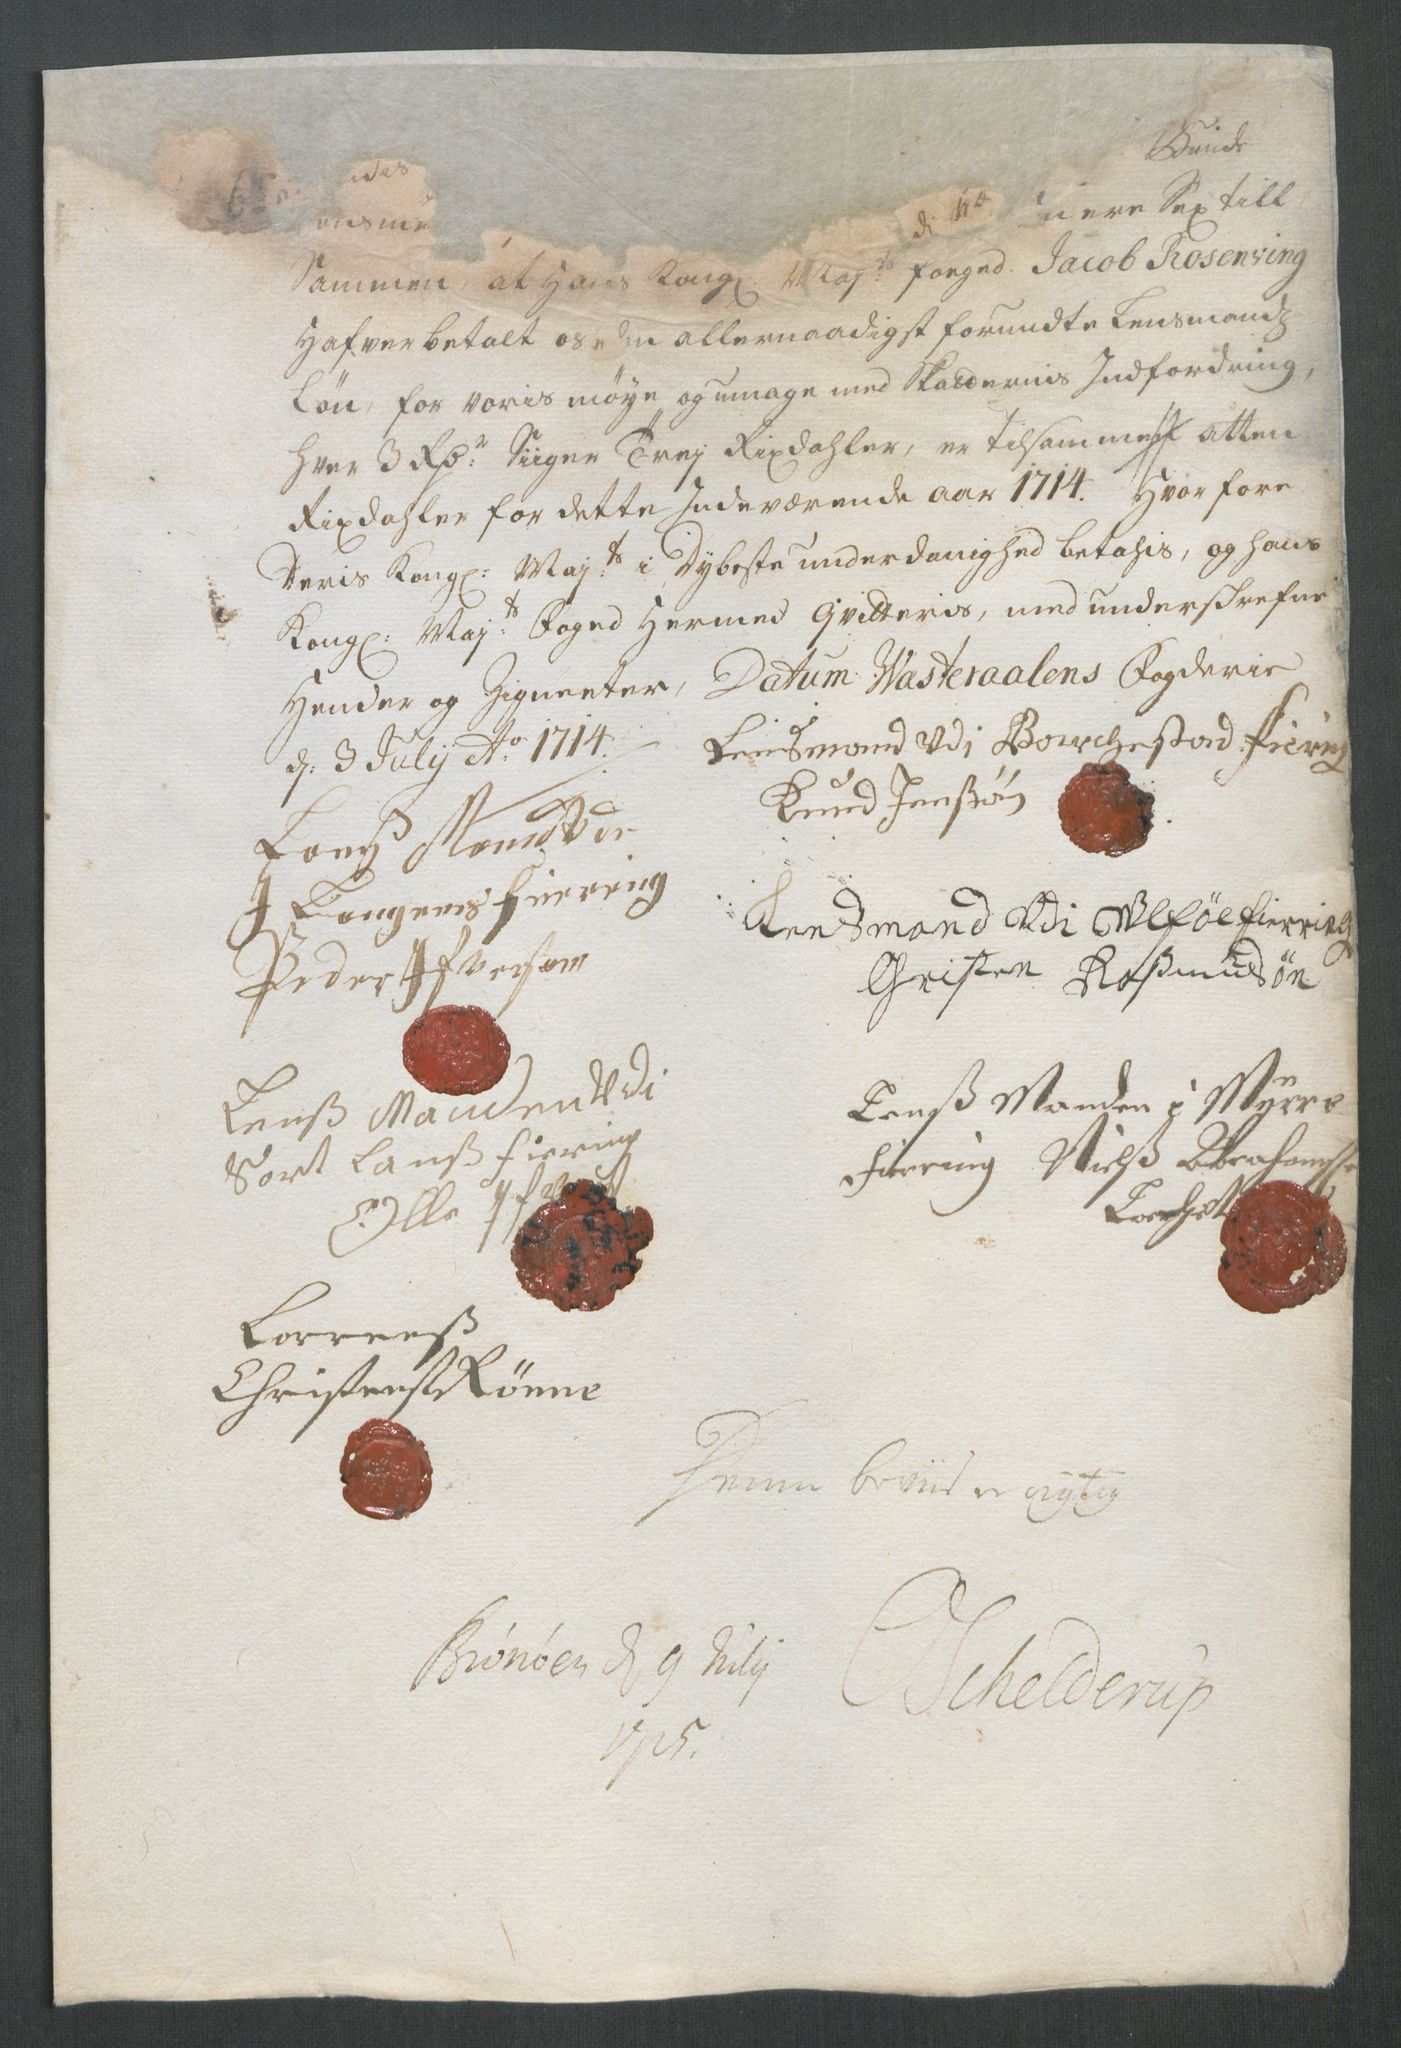 d:
ere Sex till
Sammen, at Hans Kongl. Maj:ts foeged. Jacob Rosenving
Hafver betalt os allernaadigst forundte Lensmandz
Løn, for voris møye og umage med Skatternis Indfordring,
hver 3 Rdr: Siiger Trej Rixdahler, er tilsammen atten
Rixdahler for dette Indeværende aar 1714. Hvorfore
Deris Kongl: Maj:ts i Dybeste underdanighed betahis, og hans
Kongl: Maj:ts Foged Hermed Qvitteris, med underskrefne
Hender og Zigneeter, Datum Wasteraalens Fogderie
d: 3 July Ao: 1714.
Lensmand Udi Borchestad fiering
Knud Jenßøn
Lenß Mand Udi
I Langenes fierring
Peder Ifversøn
Lensmand Udi Ulføe fierring
Christen Raßmusøn
Lenß Manden Udi
Sort Lanß fiering
Olle
Lenß Manden i Myrre
fierring Nielß Abrahamsse
Lorenß
Christenß Rønne
Denne beviis er rigtig
Brönöen d. 9 July
1715.
Schelderup